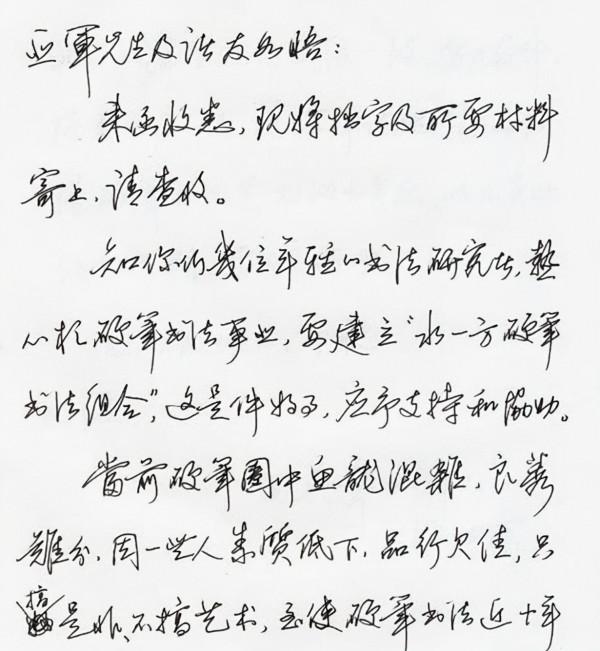 亚軍先生及诸友如晤：
来函收悉，现将拙字及所要材料
寄上，请查收。
知你们幾位年轻的书法研究者，熱
心於硬筆书法事业，要建立“水一方硬筆
书法组合”，这是件好事，应予支持和协助。
當前硬筆圈中鱼龍混雜，良莠
難分，因一些人素質低下，品行欠佳，只
搞是非、不搞艺术，至使硬筆书法近十年